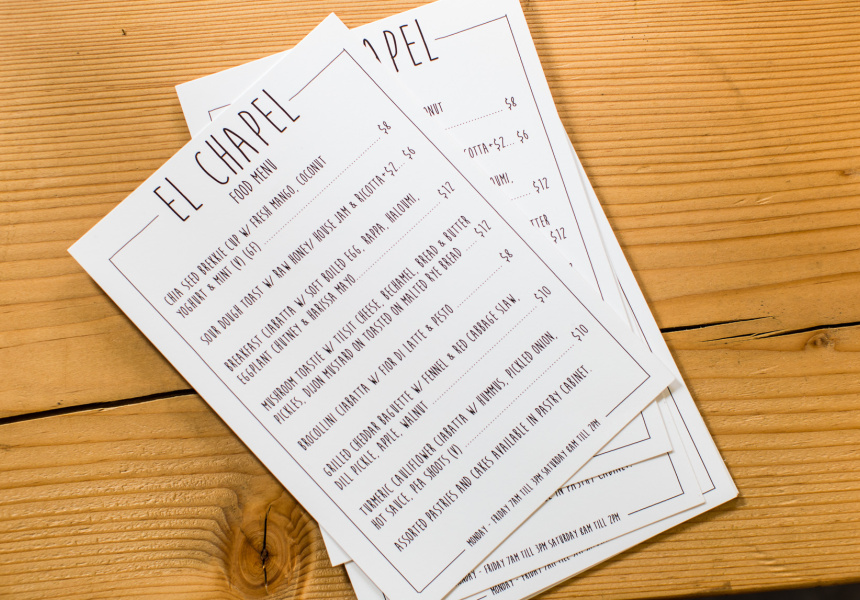 EL CHAPEL
FOOD MENU
CHIA SEED BREKKIE CUP W/ FRESH MANGO, COCONUT
YOGHURT & MINT (V) (GF) $8
SOUR DOUGH TOAST W/ RAW HONEY/ HOUSE JAM & RICOTTA+$2... $6
BREAKFAST CIABATTA W/ SOFT BOILED EGG, RAPPA, HALOUMI,
EGGPLANT CHUTNEY & HARISSA MAYO $12
MUSHROOM TOASTIE W/ TILSIT CHEESE, BECHAMEL, BREAD & BUTTER
PICKLES, DIJON MUSTARD ON TOASTED ON MALTED RYE BREAD $12
BROCOLLINI CIABATTA W/ FIOR DI LATTE & PESTO $8
GRILLED CHEDDAR BAGUETTE W/ FENNEL & RED CABBAGE SLAW,
DILL PICKLE, APPLE, WALNUT $10
TURMERIC CAULIFLOWER CIABATTA W/ HUMMUS, PICKLED ONION,
HOT SAUCE, PEA SHOOTS (V) $10
ASSORTED PASTRIES AND CAKES AVAILABLE IN PASTRY CABINET.
MONDAY - FRIDAY 7AM TILL 3PM SATURDAY 8AM TILL 2PM
APEL
NUT
$8
OTTA+$2... $6
UMI,
$12
TTER
$12
IN PASTRY CABINET.
FRIDAY 7AM TILL 3PM SATURDAY 8AM TILL 2PM
MONDAY - FRIDAY 7AM TILL